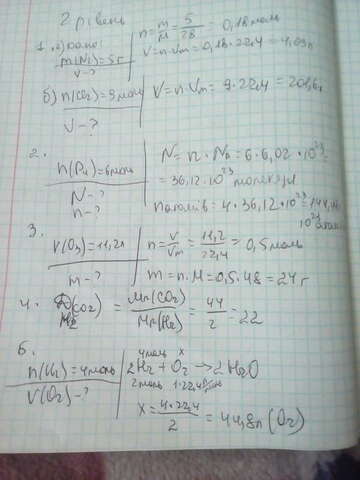 2 рівень
1. а) дано: | n = m/M = 5/28 = 0,18 моль
m(N₂) = 5г | V = n·Vm = 0,18·22,4 = 4,03л
V - ?
б) n(CO₂) = 9 моль | V = n·Vm = 9·22,4 = 201,6л
V - ?
2.
n(P₄) = 6 моль | N = n·Nₐ = 6·6,02·10²³ =
N - ? | = 36,12·10²³ молекул
n - ? | n атомів = 4·36,12·10²³ = 144,48·
10²³ атомів
3.
V(O₃) = 11,2л | n = V/Vm = 11,2/22,4 = 0,5 моль
m - ? | m = n·M = 0,5·48 = 24 г
4. D H₂ (CO₂) = Mr(CO₂)/Mr(H₂) = 44/2 = 22
6.
4 моль x
n(H₂) = 4 моль | 2H₂ + O₂ → 2H₂O
V(O₂) - ? | 2 моль 1·22,4 л/моль
x = 4·22,4/2 = 44,8л (O₂)